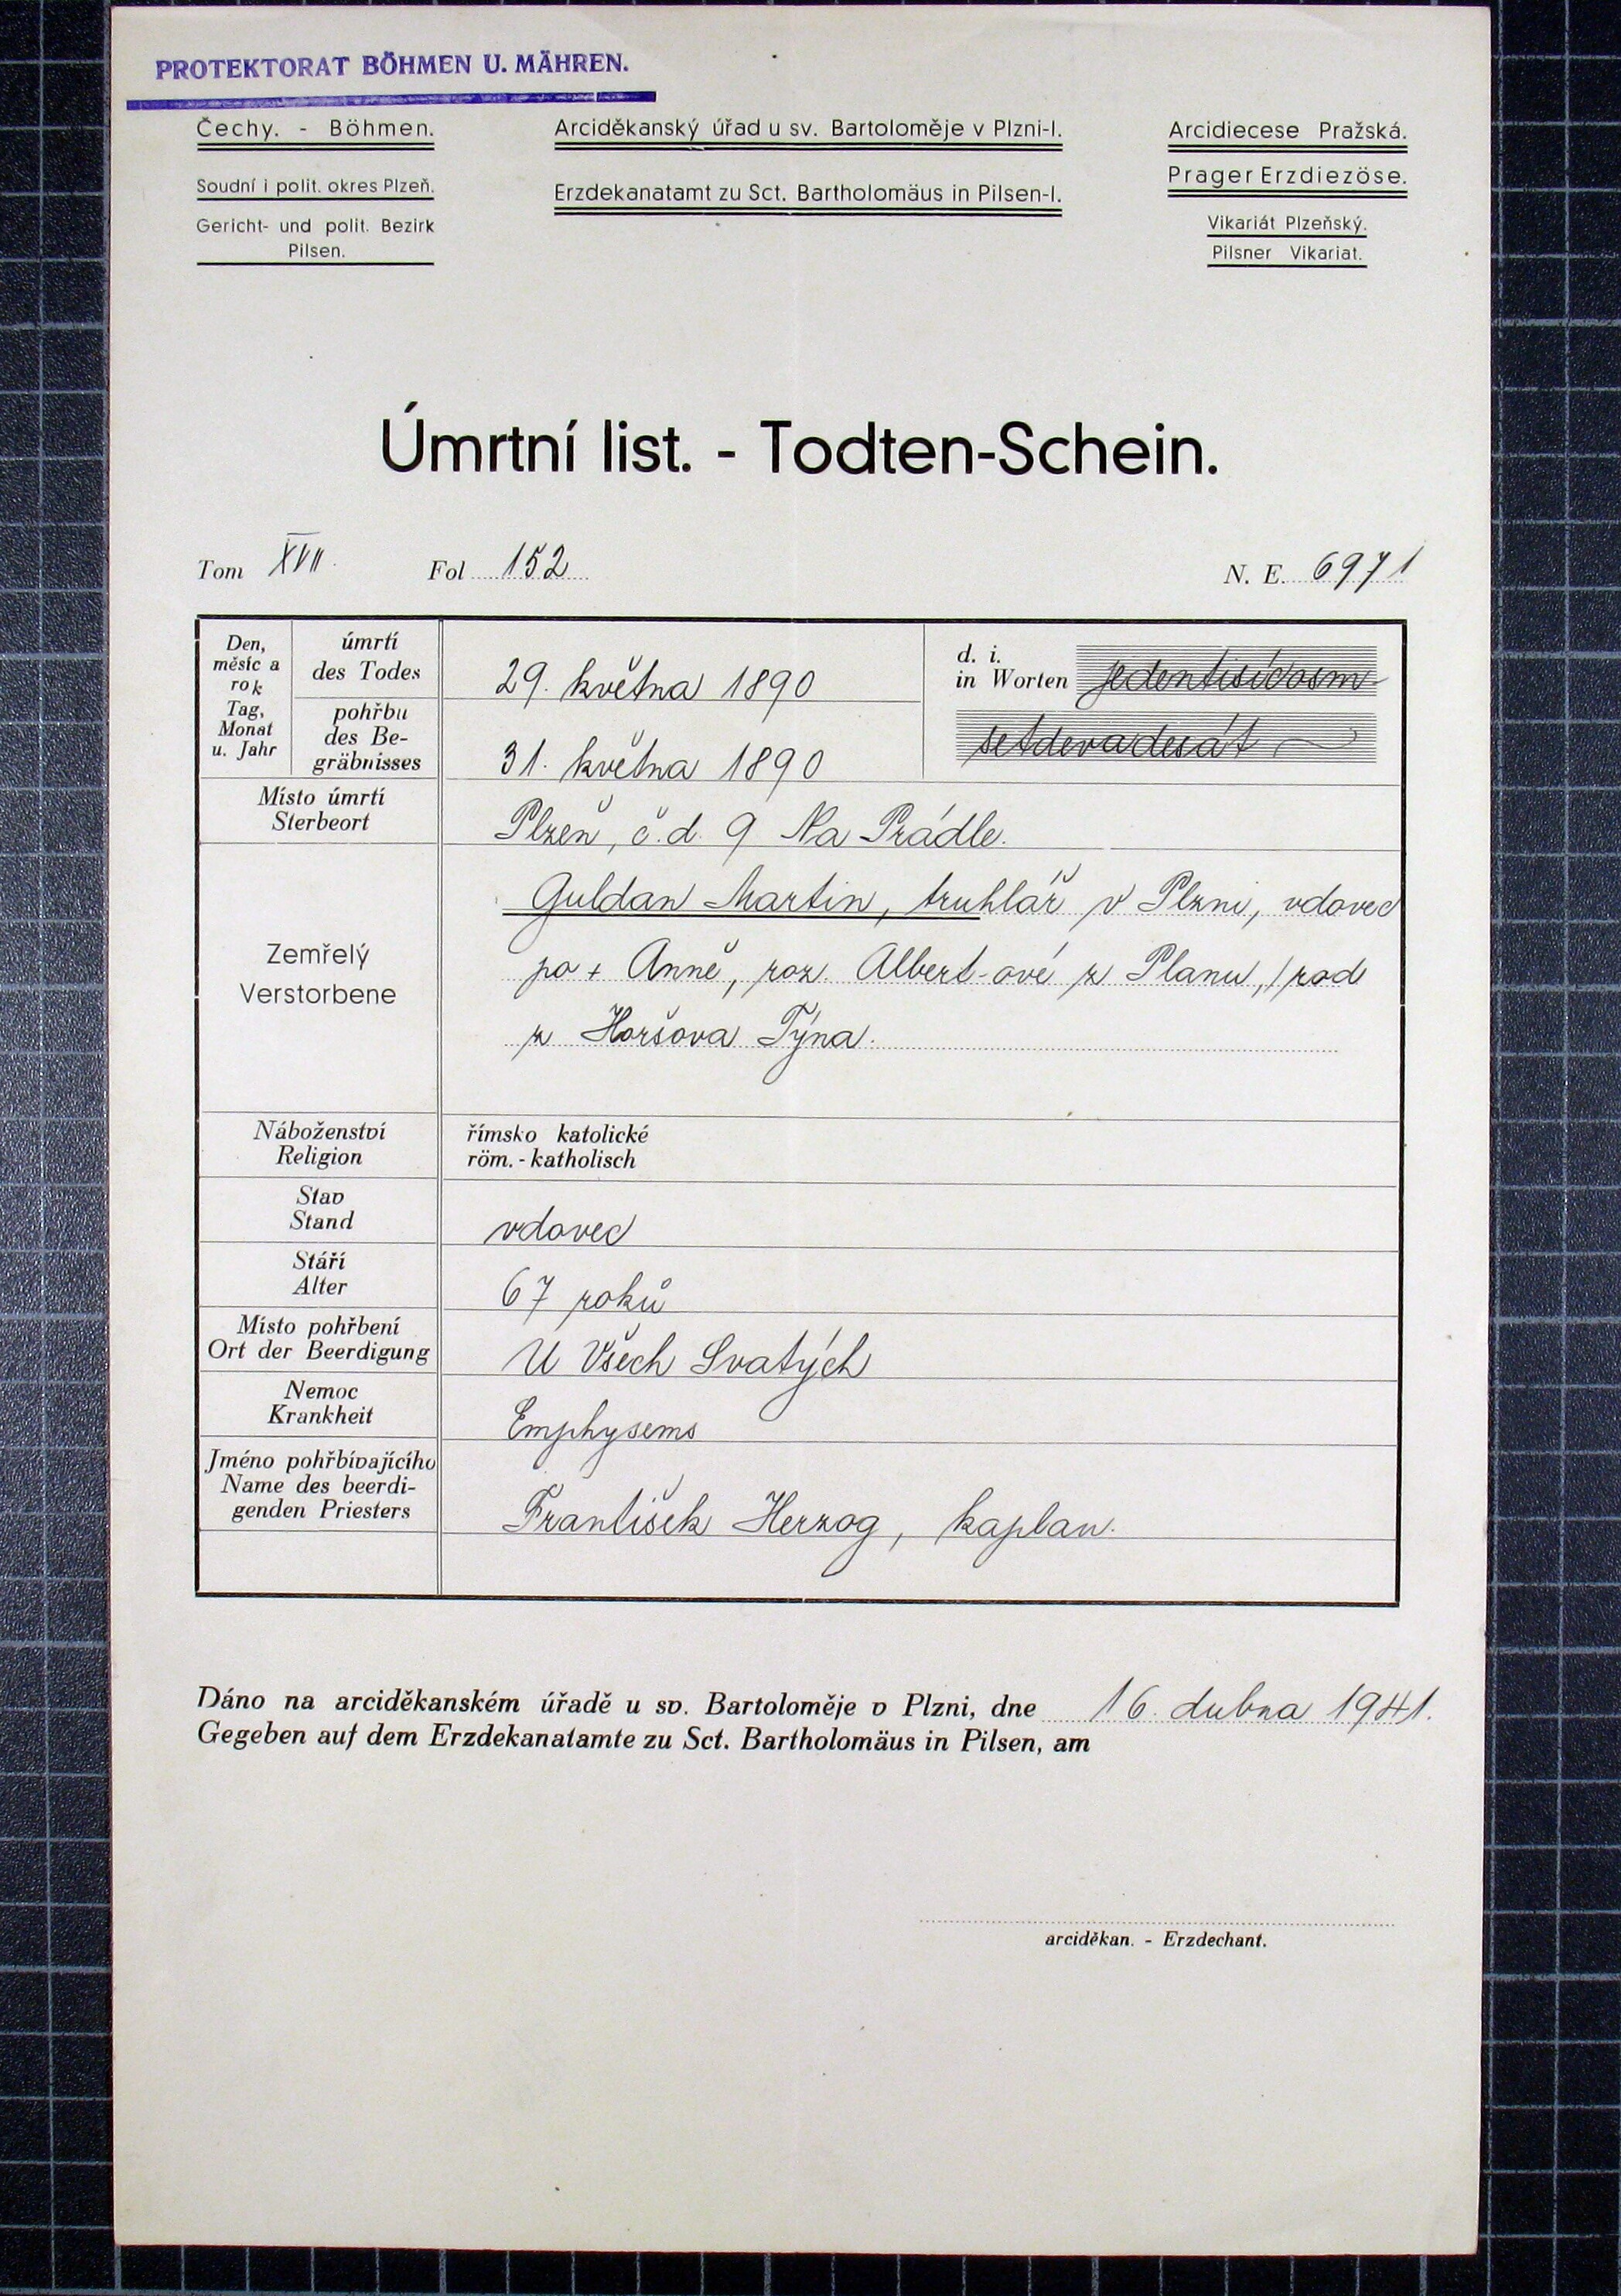 PROTEKTORAT BÖHMEN U. MÄHREN.
Čechy. - Böhmen.
Soudní i polit. okres Plzeň.
Gericht- und polit. Bezirk
Pilsen.
Arciděkanský úřad u sv. Bartoloměje v Plzni-I.
Erzdekanatamt zu Sct. Bartholomäus in Pilsen-I.
Arcidiecese Pražská.
Prager Erzdiezöse.
Vikariát Plzeňský.
Pilsner Vikariat.
Úmrtní list. - Todten-Schein.
Tom XVII Fol 152 N. E. 6971
Den,
měsíc a
rok
Tag,
Monat
u. Jahr
úmrtí
des Todes
29. května 1890
pohřbu
des Be-
gräbnisses
31. května 1890
d. i.
in Worten jedentisícosm
setdevadesát
Místo úmrtí
Sterbeort
Plzeň, č.d. 9 Na Prádle.
Zemřelý
Verstorbene
Guldan Martin, truhlář v Plzni, vdovec
po + Anně, roz. Albert-ové z Planu, / rod
z Horšova Týna.
Náboženství
Religion
římsko katolické
röm. - katholisch
Stav
Stand
vdovec
Stáří
Alter
67 roků
Místo pohřbení
Ort der Beerdigung
U Všech Svatých
Nemoc
Krankheit
Emphysems
Jméno pohřbívajícího
Name des beerdi-
genden Priesters
František Herzog, kaplan.
Dáno na arciděkanském úřadě u sv. Bartoloměje v Plzni, dne 16. dubna 1941.
Gegeben auf dem Erzdekanatamte zu Sct. Bartholomäus in Pilsen, am
arciděkan. - Erzdechant.